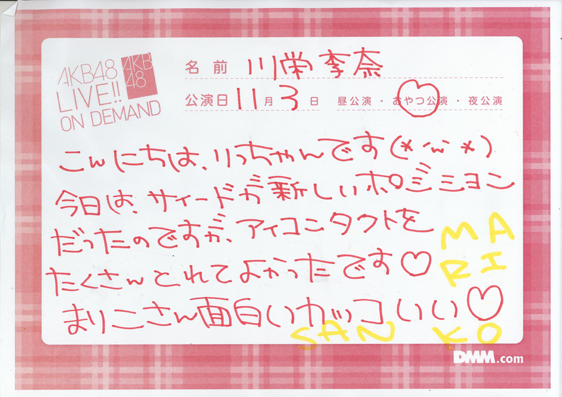 AKB48
LIVE!!
ON DEMAND
AKB
48
名前 川栄李奈
公演日 11月3日 昼公演・おやつ公演・夜公演
こんにちは、りっちゃんです(*´ω`*)
今日は、サイードが新しいポジション
だったのですが、アイコンタクトを
たくさんとれてよかったです♡
まりこさん面白いカッコいい♡
MA
RI
KO
SAN
DMM.com